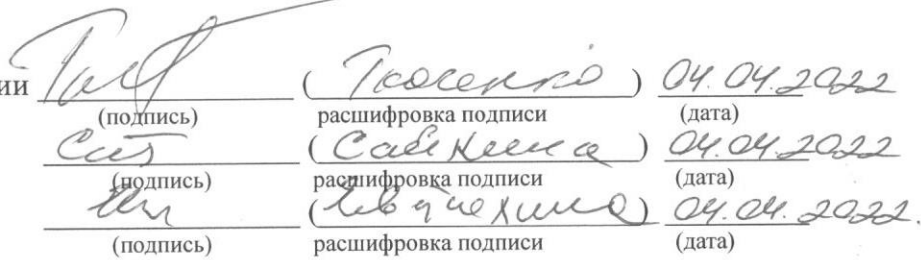 ии (Ткаченко) 04.04.2022
(подпись) расшифровка подписи (дата)
(Савкина) 04.04.2022
(подпись) расшифровка подписи (дата)
04.04.2022.
(подпись) расшифровка подписи (дата)